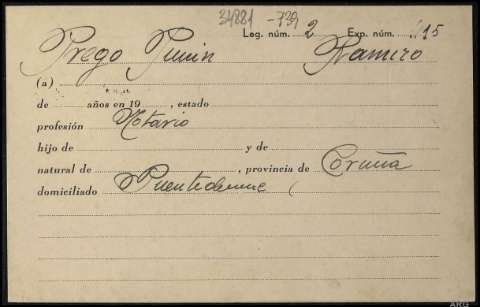 34881 - 739
Leg. núm. 2 Exp. núm. 115
Prego Ramiro
(a)
de años en 19 , estado
profesión Notario
hijo de y de
natural de , provincia de Coruña
domiciliado Puentedeume
ARG